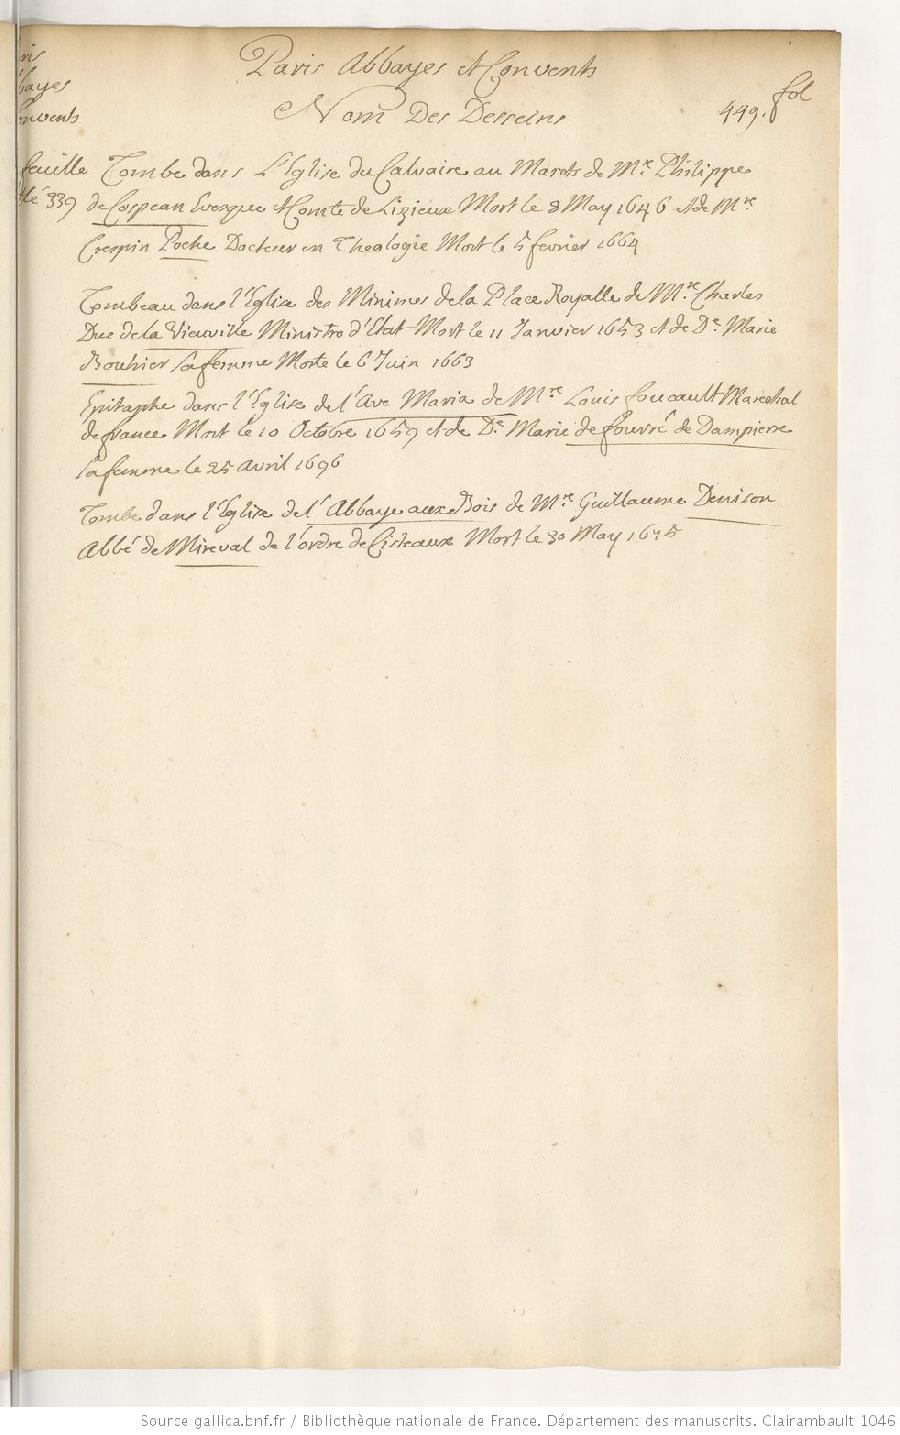 Paris Abbayes et Convents
Nom Des Desseins
449. fol
ris
bayes
nvents
feuille Tombe dans L'Eglise du Calvaire au Marets de Mre Philippe
339 de Cospean Evesque et Comte de Lizieux Mort le 8 May 1646 et de Mre
Crespin Poche Docteur en Theologie Mort le 5 fevrier 1664
Tombeau dans l'Eglise des Minimes de la Place Royalle de Mre Charles
Duc de la Vieuville Ministre d'Etat Mort le 11 Janvier 1653 et de De Marie
Bouhier sa femme Morte le 6 Juin 1663
Epitaphe dans l'Eglise de l'Ave Maria de Mre Louis foucault Marechal
de france Mort le 10 Octobre 1659 et de De Marie de fouvré de Dampierre
sa femme le 25 Avril 1696
Tombe dans l'Eglise de l'Abbaye aux Bois de Mre Guillaume Denison
Abbé de Mireval de l'ordre de Cisteaux Mort le 30 May 1645
Source gallica.bnf.fr / Bibliothèque nationale de France. Département des manuscrits. Clairambault 1046